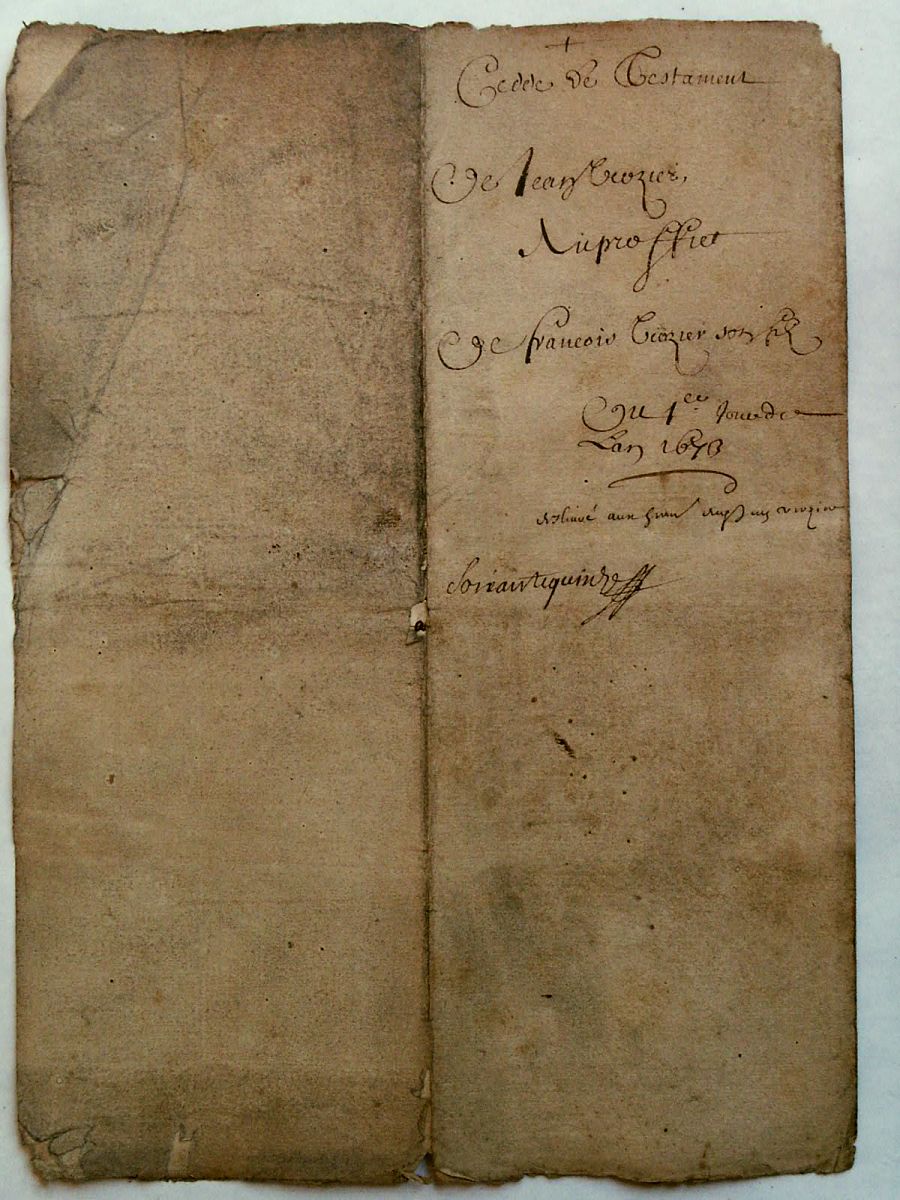 +
Cedde de Testament
De Jean Crozier,
Au proffict
De francois Crozier son filz
Du 1er Jour de
Lan 1673
aux
Soixantequinze